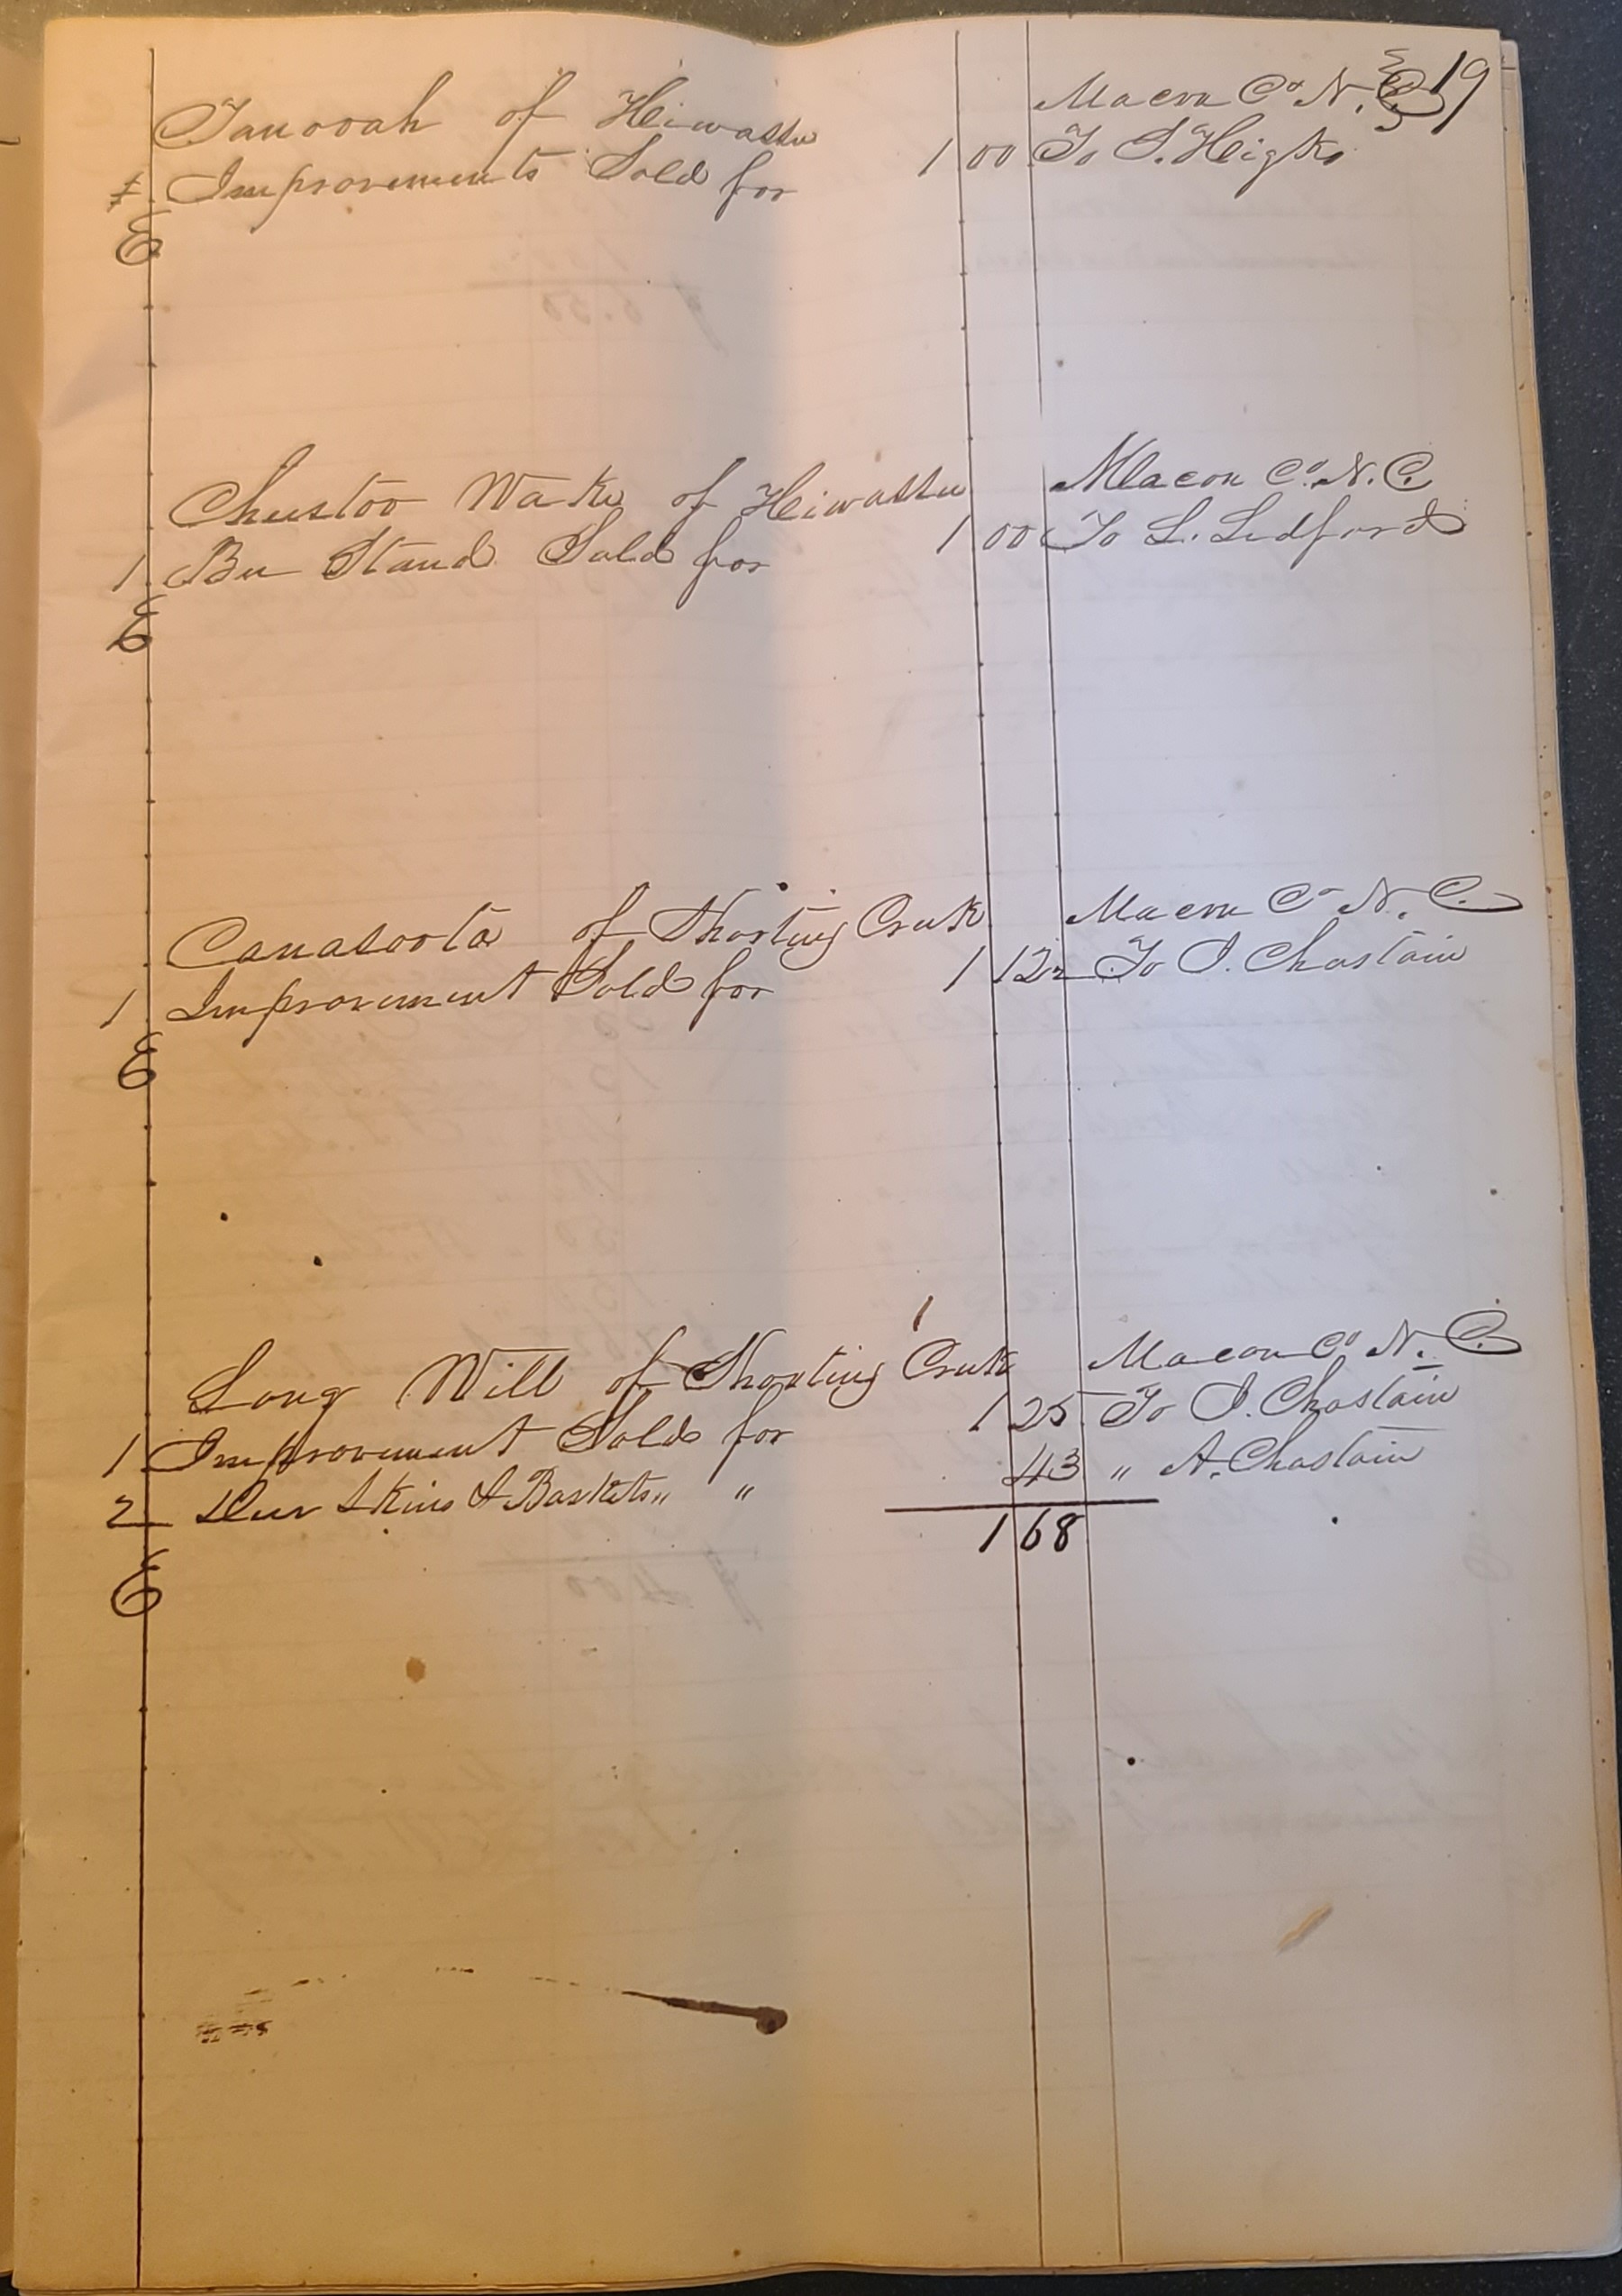 19
Tanooah of Heiwassee Macon Co N. C
‡ Improvements Sold for 1 00 To S. Heighs
E
Chustoo Wa Kee of Heiwassee Macon Co N. C.
1 Bee Stand Sold for 1 00 To L. Ledford
E
Canasoota of Shooting Creek Macon Co N. C.
1 Improvement Sold for 1 12½ To J. Chastain
E
1
Long Will of Shooting Creek Macon Co N. C.
1 Improvement Sold for 1 25 To J. Chastain
2 Deer Skins & Baskets " " 43 " A. Chastain
1 68
E